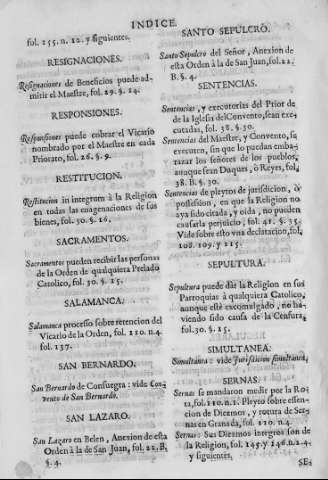 INDICE.
fol. 155. n. 12. y siguientes.
RESIGNACIONES.
Resignaciones de Beneficios puede ad-
mitir el Maestre, fol. 29. §. 14.
RESPONSIONES.
Responsiones puede cobrar el Vicario
nombrado por el Maestre en cada
Priorato, fol. 26. §. 9.
RESTITUCION.
Restitucion in integrum à la Religion
en todas las enagenaciones de sus
bienes, fol. 30. §. 16.
SACRAMENTOS.
Sacramentos pueden recibir las personas
de la Orden de qualquiera Prelado
Catolico, fol. 30. §. 15.
SALAMANCA.
Salamanca processo sobre retencion del
Vicario de la Orden, fol. 110. n. 4.
fol. 137.
SAN BERNARDO.
San Bernardo de Consuegra: vide Con-
vento de San Bernardo.
SAN LAZARO.
San Lazaro en Belen, Anexion de esta
Orden à la de San Juan, fol. 22. B.
§. 4.
SANTO SEPULCRO.
Santo Sepulcro del Señor, Anexion de
esta Orden à la de San Juan, fol. 22.
B. §. 4.
SENTENCIAS.
Sentencias, y executorias del Prior de
de la Iglesia del Convento, sean exe-
cutadas, fol. 38. §. 30.
Sentencias del Maestre, y Convento, se
executen, sin que lo puedan emba-
razar los señores de los pueblos,
aunque sean Duques, ò Reyes, fol.
38. B. §. 30.
Sentencias de pleytos de jurisdicion, ò
possession, en que la Religion no
aya sido citada, y oida, no pueden
causarla perjuicio, fol. 41. §. 35.
Vide sobre esto una declaracion, fol.
108. 109. y 115.
SEPULTURA.
Sepultura puede dàr la Religion en sus
Parroquias à qualquiera Catolico,
aunque estè excomulgado, no ha-
viendo sido causa de la Censura,
fol. 30. §. 15.
SIMULTANEA.
Simultanea: vide Jurisdicion simultanea,
SERNAS.
Sernas se mandaron medir por la Ro-
ta, fol. 110. n. 2. Pleyto sobre essen-
cion de Diezmos, y rotura de Ser-
nas en Granada, fol. 110. n. 4.
Sernas: Sus Diezmos integros son de
la Religion, fol. 145. y 146. n. 2. 4.
y siguientes,
SE-